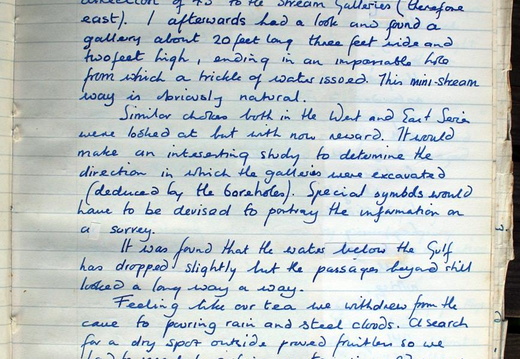 direction of 45 to the Stream Galleries (therefore
east). I afterwards had a look and found a
gallery about 20 feet long three feet wide and
two feet high, ending in an impassable hole
from which a trickle of water issued. This mini-stream
way is obviously natural.
Similar chokes both in the West and East Series
were looked at but with now reward. It would
make an interesting study to determine the
direction in which the galleries were excavated
(deduced by the boreholes). Special symbols would
have to be devised to portray the information on
a survey.
It was found that the water below the Gulf
has dropped slightly but the passages beyond still
looked a long way a way.
Feeling like our tea we withdrew from the
cave to pouring rain and steel clouds. A search
for a dry spot outside proved fruitless so we
had to